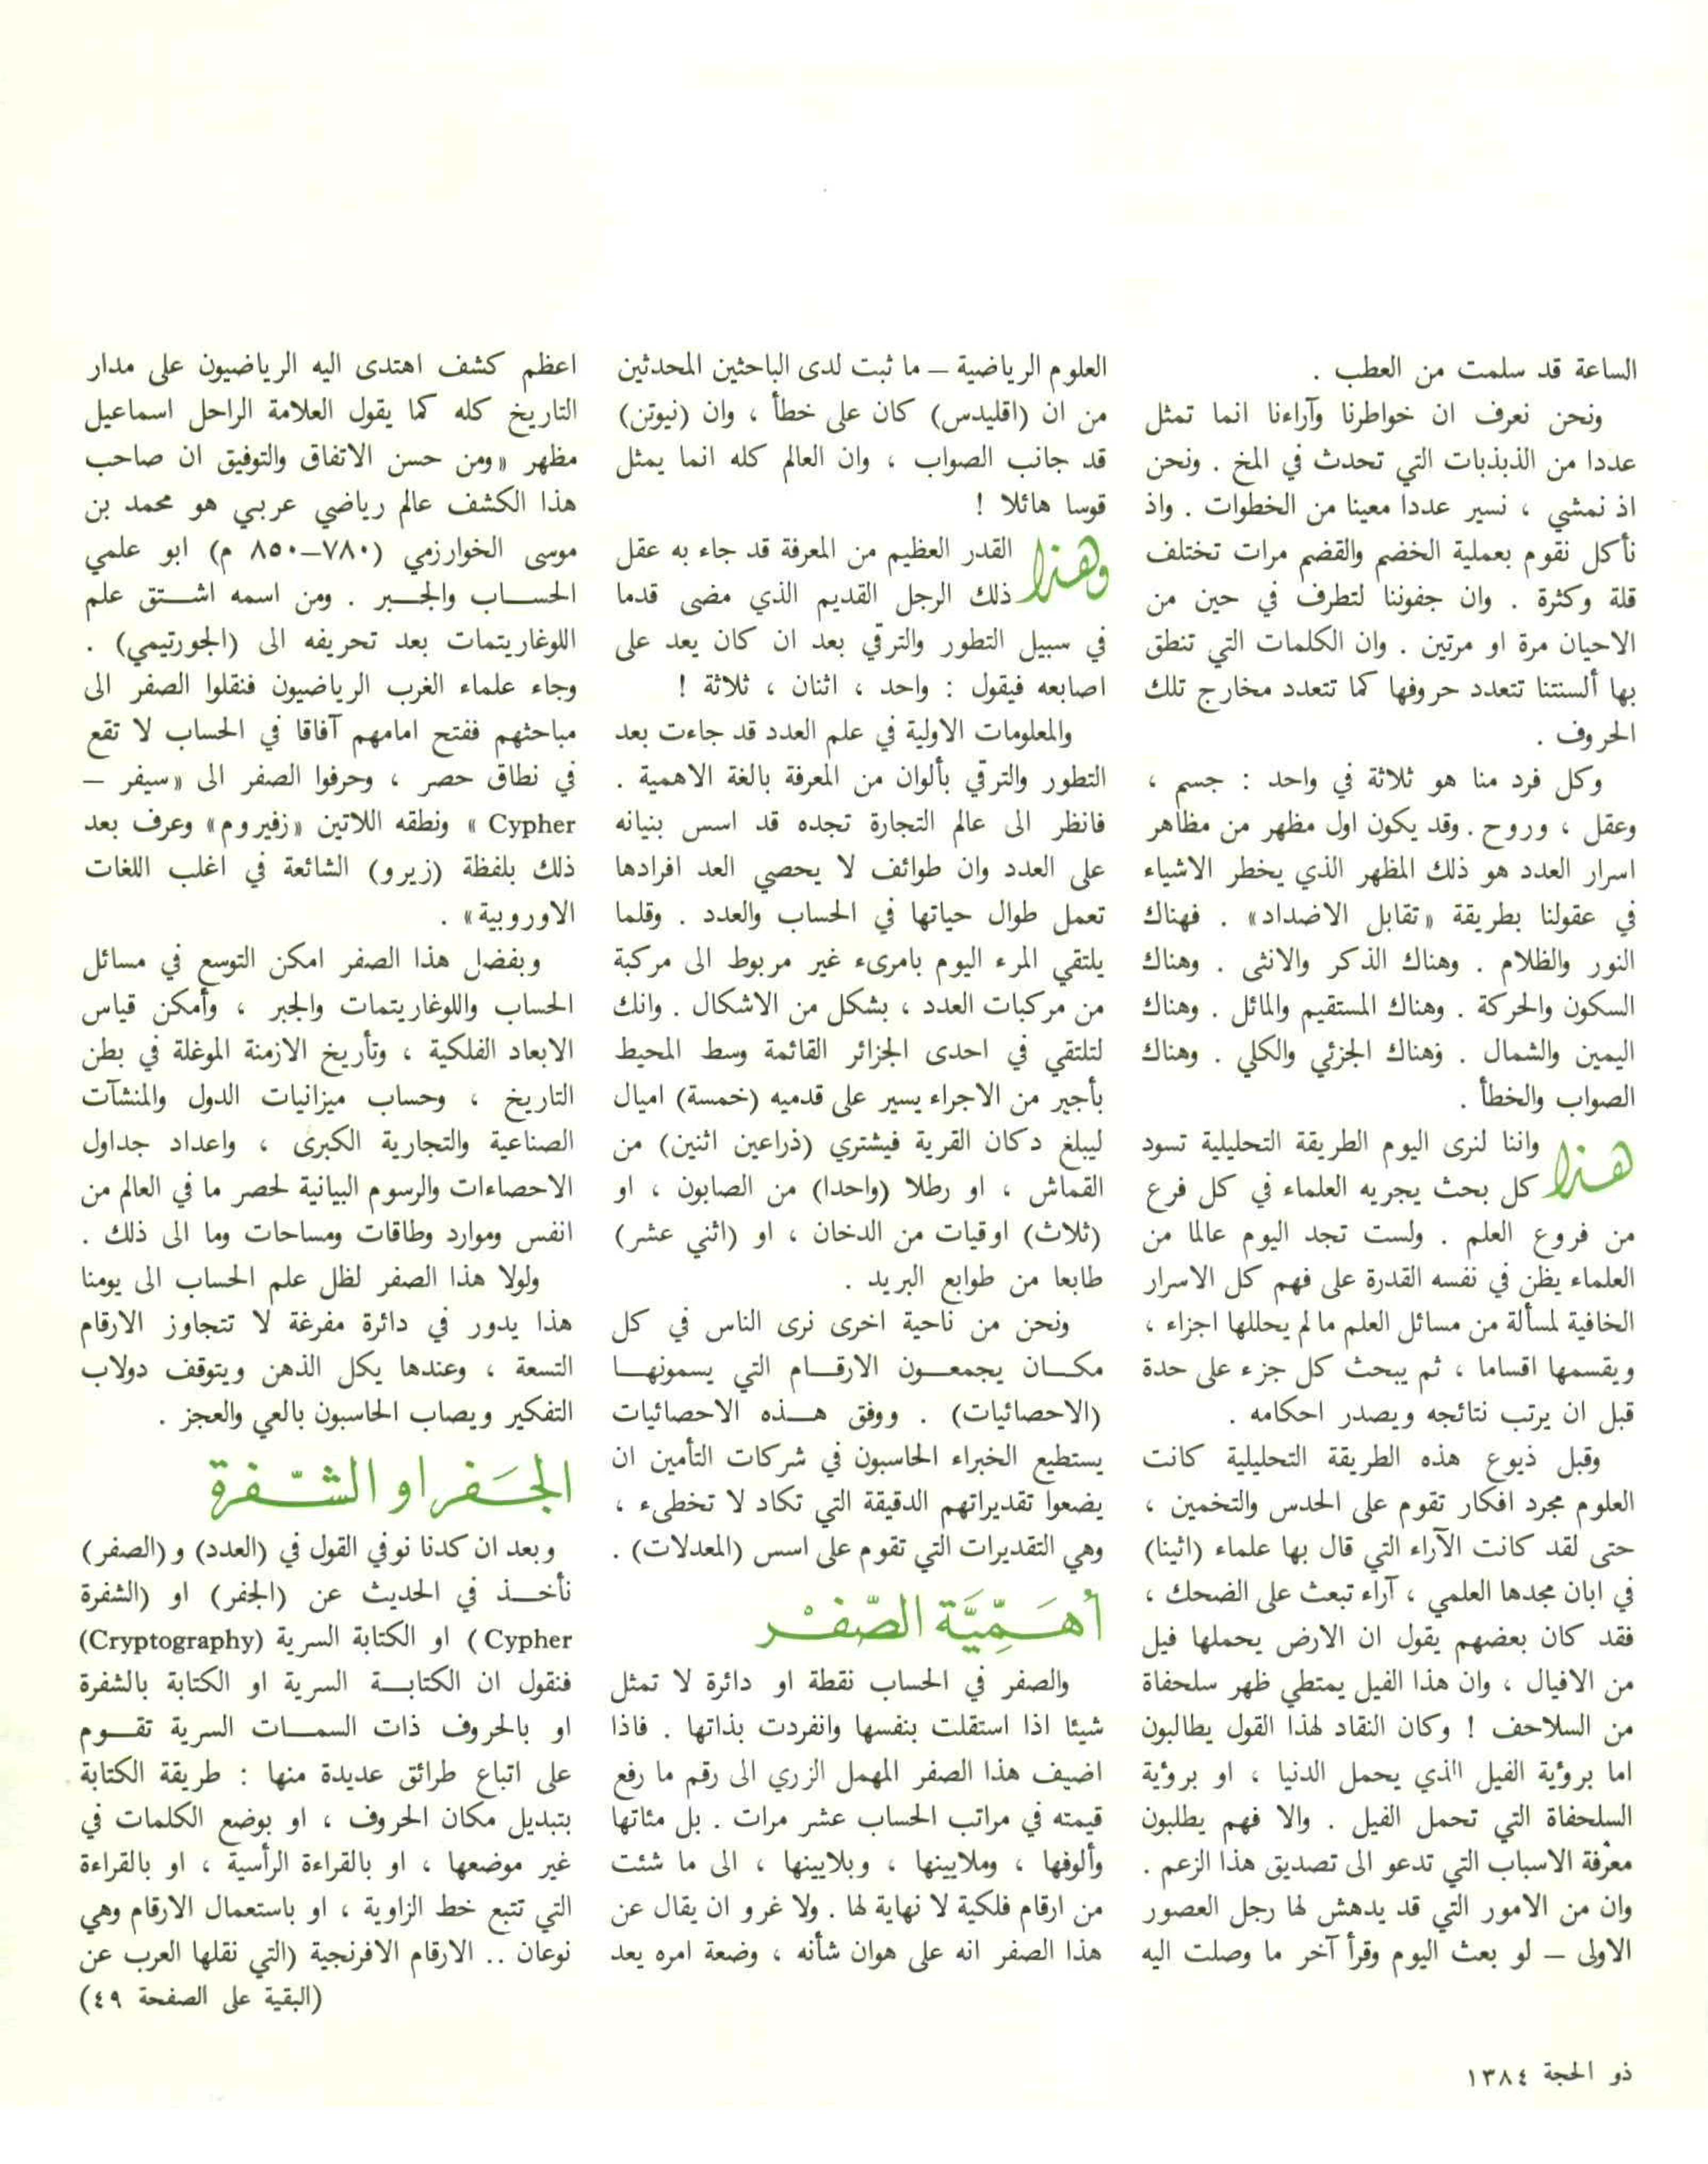 الساعة قد سلمت من العطب .
ونحن نعرف ان خواطرنا وآراءنا انما تمثل
عددا من الذبذبات التي تحدث في المخ . ونحن
اذ نمشي ، نسير عددا معينا من الخطوات . واذ
نأكل نقوم بعملية الخضم والقضم مرات تختلف
قلة وكثرة . وان جفوننا لتطرف في حين من
الاحيان مرة او مرتين . وان الكلمات التي تنطق
بها ألسنتنا تتعدد حروفها كما تتعدد مخارج تلك
الحروف .
وكل فرد منا هو ثلاثة في واحد : جسم ،
وعقل ، وروح . وقد يكون اول مظهر من مظاهر
اسرار العدد هو ذلك المظهر الذي يخطر الاشياء
في عقولنا بطريقة «تقابل الاضداد» . فهناك
النور والظلام . وهناك الذكر والانثى . وهناك
السكون والحركة . وهناك المستقيم والمائل . وهناك
اليمين والشمال . وهناك الجزئي والكلي . وهناك
الصواب والخطأ .
هذا واننا لنرى اليوم الطريقة التحليلية تسود
كل بحث يجريه العلماء في كل فرع
من فروع العلم . ولست تجد اليوم عالما من
العلماء يظن في نفسه القدرة على فهم كل الاسرار
الخافية لمسألة من مسائل العلم ما لم يحللها اجزاء ،
ويقسمها اقساما ، ثم يبحث كل جزء على حدة
قبل ان يرتب نتائجه ويصدر احكامه .
وقبل ذيوع هذه الطريقة التحليلية كانت
العلوم مجرد افكار تقوم على الحدس والتخمين ،
حتى لقد كانت الآراء التي قال بها علماء (اثينا)
في ابان مجدها العلمي ، آراء تبعث على الضحك ،
فقد كان بعضهم يقول ان الارض يحملها فيل
من الافيال ، وان هذا الفيل يمتطي ظهر سلحفاة
من السلاحف ! وكان النقاد لهذا القول يطالبون
اما برؤية الفيل الذي يحمل الدنيا ، او برؤية
السلحفاة التي تحمل الفيل . والا فهم يطلبون
معرفة الاسباب التي تدعو الى تصديق هذا الزعم .
وان من الامور التي قد يدهش لها رجل العصور
الاولى – لو بعث اليوم وقرأ آخر ما وصلت اليه
العلوم الرياضية – ما ثبت لدى الباحثين المحدثين
من ان (اقليدس) كان على خطأ ، وان (نيوتن)
قد جانب الصواب ، وان العالم كله انما يمثل
قوسا هائلا !
وهذا القدر العظيم من المعرفة قد جاء به عقل
ذلك الرجل القديم الذي مضى قدما
في سبيل التطور والترقي بعد ان كان يعد على
اصابعه فيقول : واحد ، اثنان ، ثلاثة !
والمعلومات الاولية في علم العدد قد جاءت بعد
التطور والترقي بألوان من المعرفة بالغة الاهمية .
فانظر الى عالم التجارة تجده قد اسس بنيانه
على العدد وان طوائف لا يحصي العد افرادها
تعمل طوال حياتها في الحساب والعدد . وقلما
يلتقي المرء اليوم بامرىء غير مربوط الى مركبة
من مركبات العدد ، بشكل من الاشكال . وانك
لتلتقي في احدى الجزائر القائمة وسط المحيط
بأجير من الاجراء يسير على قدميه (خمسة) اميال
ليبلغ دكان القرية فيشتري (ذراعين اثنين) من
القماش ، او رطلا (واحدا) من الصابون ، او
(ثلاث) اوقيات من الدخان ، او (اثني عشر)
طابعا من طوابع البريد .
ونحن من ناحية اخرى نرى الناس في كل
مكان يجمعون الارقام التي يسمونها
(الاحصائيات) . ووفق هذه الاحصائيات
يستطيع الخبراء الحاسبون في شركات التأمين ان
يضعوا تقديراتهم الدقيقة التي تكاد لا تخطىء ،
وهي التقديرات التي تقوم على اسس (المعدلات) .
أهَمِّيَّة الصّفْر
والصفر في الحساب نقطة او دائرة لا تمثل
شيئا اذا استقلت بنفسها وانفردت بذاتها . فاذا
اضيف هذا الصفر المهمل الزري الى رقم ما رفع
قيمته في مراتب الحساب عشر مرات . بل مئاتها
وألوفها ، وملايينها ، وبلايينها ، الى ما شئت
من ارقام فلكية لا نهاية لها . ولا غرو ان يقال عن
هذا الصفر انه على هوان شأنه ، وضعة امره يعد
اعظم كشف اهتدى اليه الرياضيون على مدار
التاريخ كله كما يقول العلامة الراحل اسماعيل
مظهر «ومن حسن الاتفاق والتوفيق ان صاحب
هذا الكشف عالم رياضي عربي هو محمد بن
موسى الخوارزمي (٧٨٠–٨٥٠ م) ابو علمي
الحساب والجبر . ومن اسمه اشتق علم
اللوغاريتمات بعد تحريفه الى (الجورتيمي) .
وجاء علماء الغرب الرياضيون فنقلوا الصفر الى
مباحثهم ففتح امامهم آفاقا في الحساب لا تقع
في نطاق حصر ، وحرفوا الصفر الى «سيفر –
Cypher » ونطقه اللاتين «زفيروم» وعرف بعد
ذلك بلفظة (زيرو) الشائعة في اغلب اللغات
الاوروبية» .
وبفضل هذا الصفر امكن التوسع في مسائل
الحساب واللوغاريتمات والجبر ، وأمكن قياس
الابعاد الفلكية ، وتأريخ الازمنة الموغلة في بطن
التاريخ ، وحساب ميزانيات الدول والمنشآت
الصناعية والتجارية الكبرى ، واعداد جداول
الاحصاءات والرسوم البيانية لحصر ما في العالم من
انفس وموارد وطاقات ومساحات وما الى ذلك .
ولولا هذا الصفر لظل علم الحساب الى يومنا
هذا يدور في دائرة مفرغة لا تتجاوز الارقام
التسعة ، وعندها يكل الذهن ويتوقف دولاب
التفكير ويصاب الحاسبون بالعي والعجز .
الجَفر او الشّفرة
وبعد ان كدنا نوفي القول في (العدد) و (الصفر)
نأخذ في الحديث عن (الجفر) او (الشفرة
Cypher) او الكتابة السرية (Cryptography)
فنقول ان الكتابة السرية او الكتابة بالشفرة
او بالحروف ذات السمات السرية تقوم
على اتباع طرائق عديدة منها : طريقة الكتابة
بتبديل مكان الحروف ، او بوضع الكلمات في
غير موضعها ، او بالقراءة الرأسية ، او بالقراءة
التي تتبع خط الزاوية ، او باستعمال الارقام وهي
نوعان .. الارقام الافرنجية (التي نقلها العرب عن
(البقية على الصفحة ٤٩)
ذو الحجة ١٣٨٤